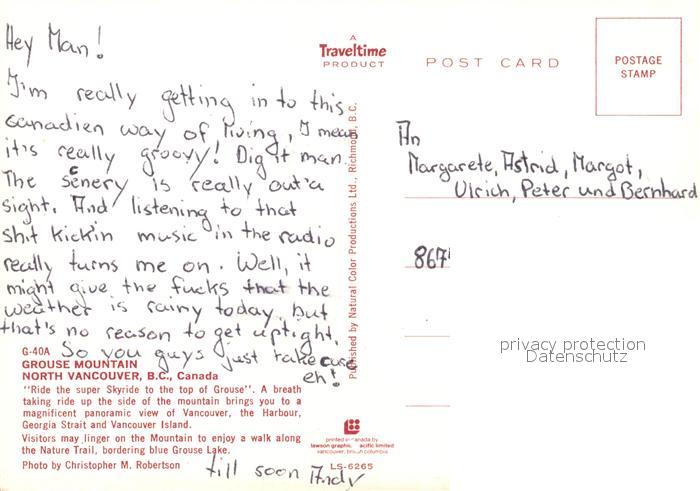 Hey Man!
I'm really getting in to this
canadien way of living, I mean
it's really groovy! Dig it man.
The scenery is really out'a
sight. And listening to that
shit kickin music in the radio
really turns me on. Well, it
might give the fucks that the
weather is rainy today, but
that's no reason to get uptight.
So you guys just take care
eh!
till soon Andy
G-40A
GROUSE MOUNTAIN
NORTH VANCOUVER, B.C., Canada
"Ride the super Skyride to the top of Grouse". A breath
taking ride up the side of the mountain brings you to a
magnificent panoramic view of Vancouver, the Harbour,
Georgia Strait and Vancouver Island.
Visitors may linger on the Mountain to enjoy a walk along
the Nature Trail, bordering blue Grouse Lake.
Photo by Christopher M. Robertson
A
Traveltime
PRODUCT
Published by Natural Color Productions Ltd., Richmond, B.C.
printed in canada by
lawson graphic pacific limited
vancouver, british columbia
LS-6265
POST CARD
POSTAGE
STAMP
An
Margarete, Astrid, Margot,
Ulrich, Peter und Bernhard
867
privacy protection
Datenschutz